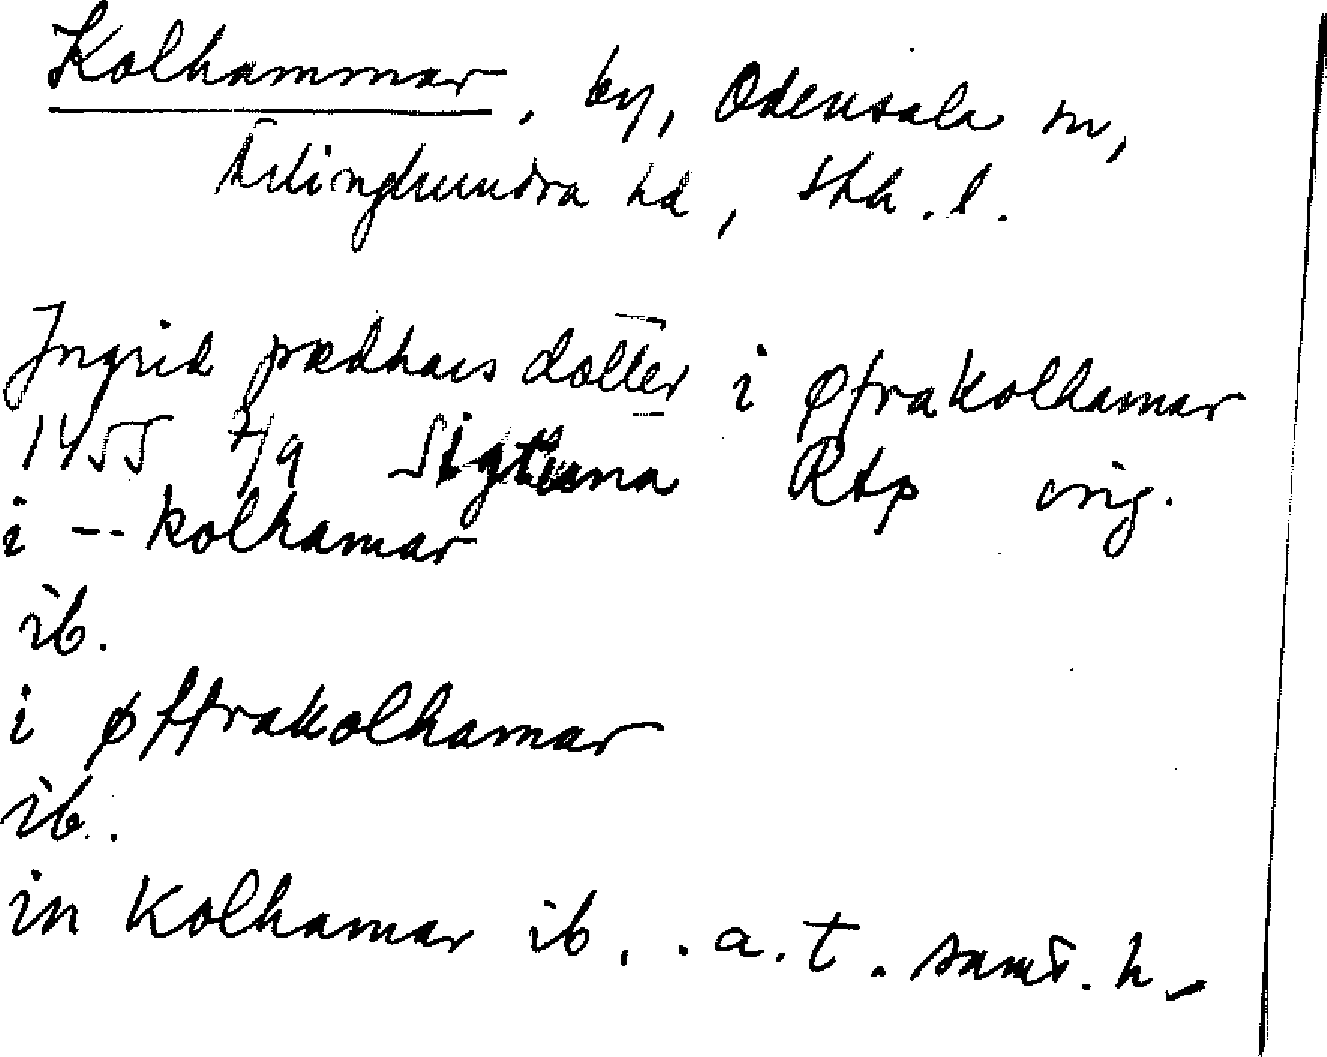 Kolhammar, by, Odensala sn,
Ärlinghundra hd, Sth. l.
Ingrid prædhars dotter i øfrakolhamar
1455 7/9 Sigtuna RAp orig.
i -- kolhamar
ib.
i øffrakolhamar
ib.
in kolhamar ib. . a. t. samt. h.